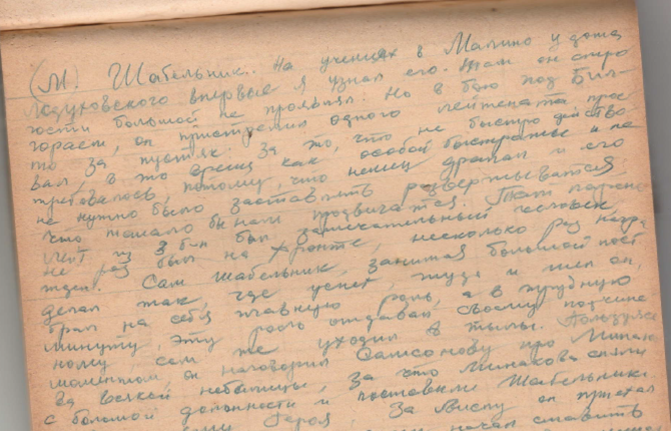 (М) Шабельник. На учениях в Малино у дома
впервые я узнал его. Там он
гости большой не проявил. Но в бою под Бил-
гораем, он пристрелил одного лейтенанта про-
то за пустяк. За то, что не быстро действо-
вал, в то время как особой быстроты и не
требовалось, потому, что немец драпал и его
не нужно было заставлять развертываться
что мешало бы нам продвигаться. Тот парень
лейт из 3 б-н был замечательный человек
не раз был на фронте, несколько раз награ
жден. Сам Шабельник, занимая большой пост
делал так, где успех, туда и шел он,
брал на себя главную роль, а в трудную
минуту, эту роль отдавал своему подчине
ному, сам же уходил в тылы. Пользуясь
моментом он наговорил Самсонову про Минако
ва всякой небылицы, за что Минакова сняли
с большой должности и поставили Шабельника.
Героя. За Вислу он
начал ставить